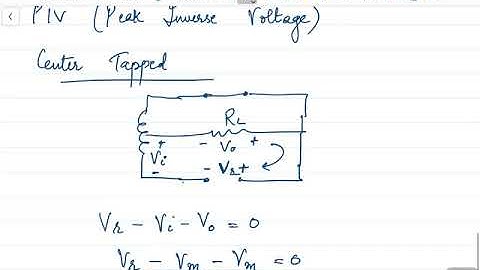 PIV (Peak Inverse Voltage)
Center Tapped
RL
+ - Vo +
Vi - Vr +
-
Vr - Vi - Vo = 0
Vr - Vm - Vm = 0